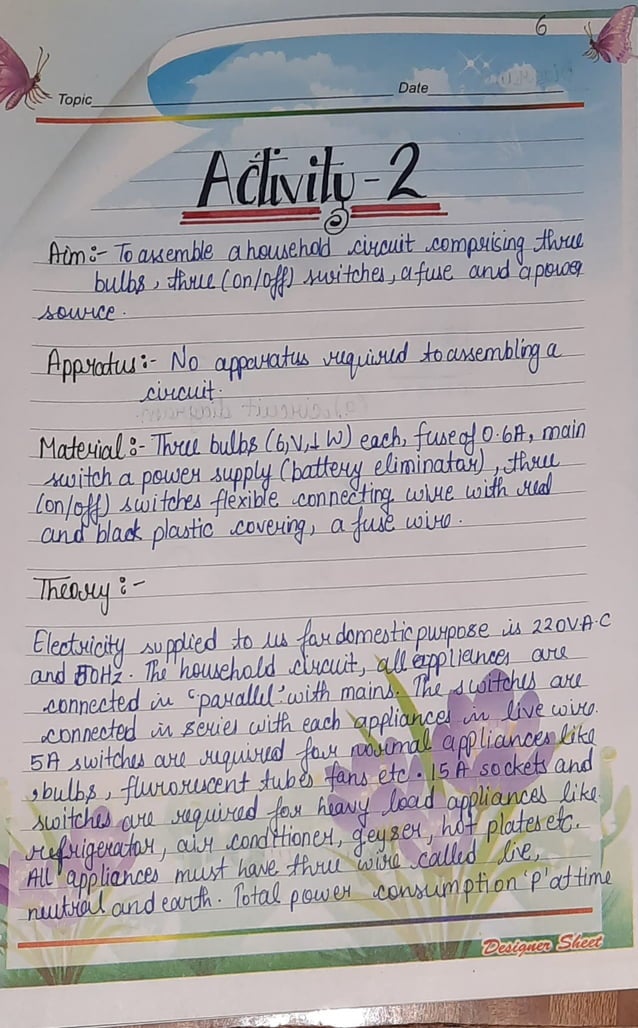 6
Topic
Date
Activity-2
Aim:- To assemble a household circuit comprising three
bulbs, three (on/off) switches, a fuse and a power
source.
Appratus:- No apparatus required to assembling a
circuit.
Material:- Three bulbs (6,V,1 W) each, fuse of 0.6A, main
switch a power supply (battery eliminator), three
(on/off) switches flexible connecting wire with red
and black plastic covering, a fuse wire.
Theory:-
Electricity supplied to us for domestic purpose is 220V A.C
and 50Hz. The household circuit, all appliences are
connected in 'parallel' with mains. The switches are
connected in series with each appliances in live wire.
5A switches are required for normal appliances like
bulbs, flurorescent tubes fans etc. 15A sockets and
switches are required for heavy load appliances like
refrigerator, air conditioner, geyser, hot plates etc.
All appliances must have three wire called live,
neutral and earth. Total power consumption 'P' at time
Designer Sheet